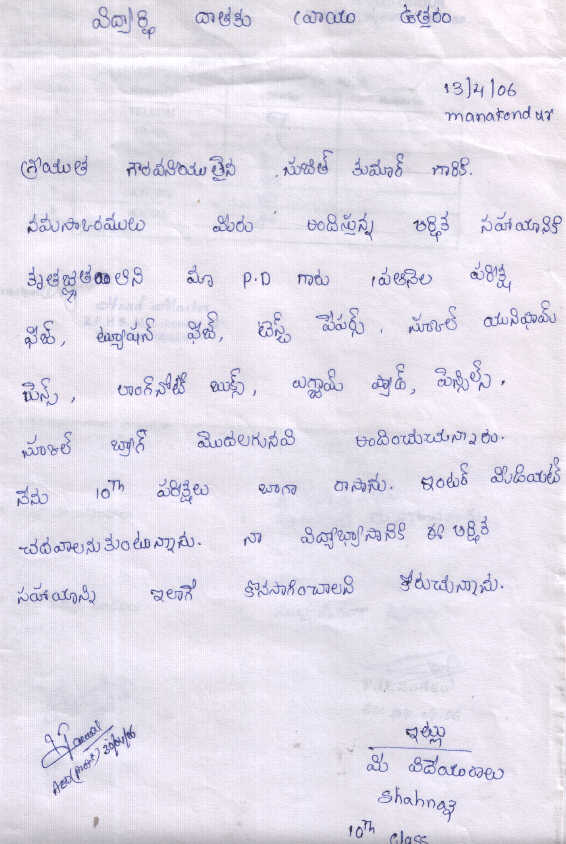 విద్యార్థి దాతకు వ్రాయు ఉత్తరం
13/4/06
manakondur
శ్రీయుత గౌరవనీయులైన సుజిత్ కుమార్ గారికి.
నమస్కారములు మీరు అందిస్తున్న ఆర్థిక సహాయానికి
కృతజ్ఞతలు మా P.D గారు ప్రతినెల పరీక్ష
ఫీజ్, ట్యూషన్ ఫీజ్, టెస్ట్ పేపర్స్, స్కూల్ యునిఫామ్
పెన్స్, లాంగ్‌నోట్ బుక్స్, ఎగ్జామ్ ప్యాడ్, పెన్సిల్స్,
స్కూల్ బ్యాగ్ మొదలగునవి అందించుచున్నారు.
నేను 10th పరీక్షలు బాగా రాసాను. ఇంటర్ మీడియట్
చదవాలనుకుంటున్నాను. నా విద్యాభ్యాసానికి ఈ ఆర్థిక
సహాయాన్ని ఇలాగే కొనసాగించాలని కోరుచున్నాను.
ఇట్లు
మీ విదేయురాలు
Shahnaz
10th class